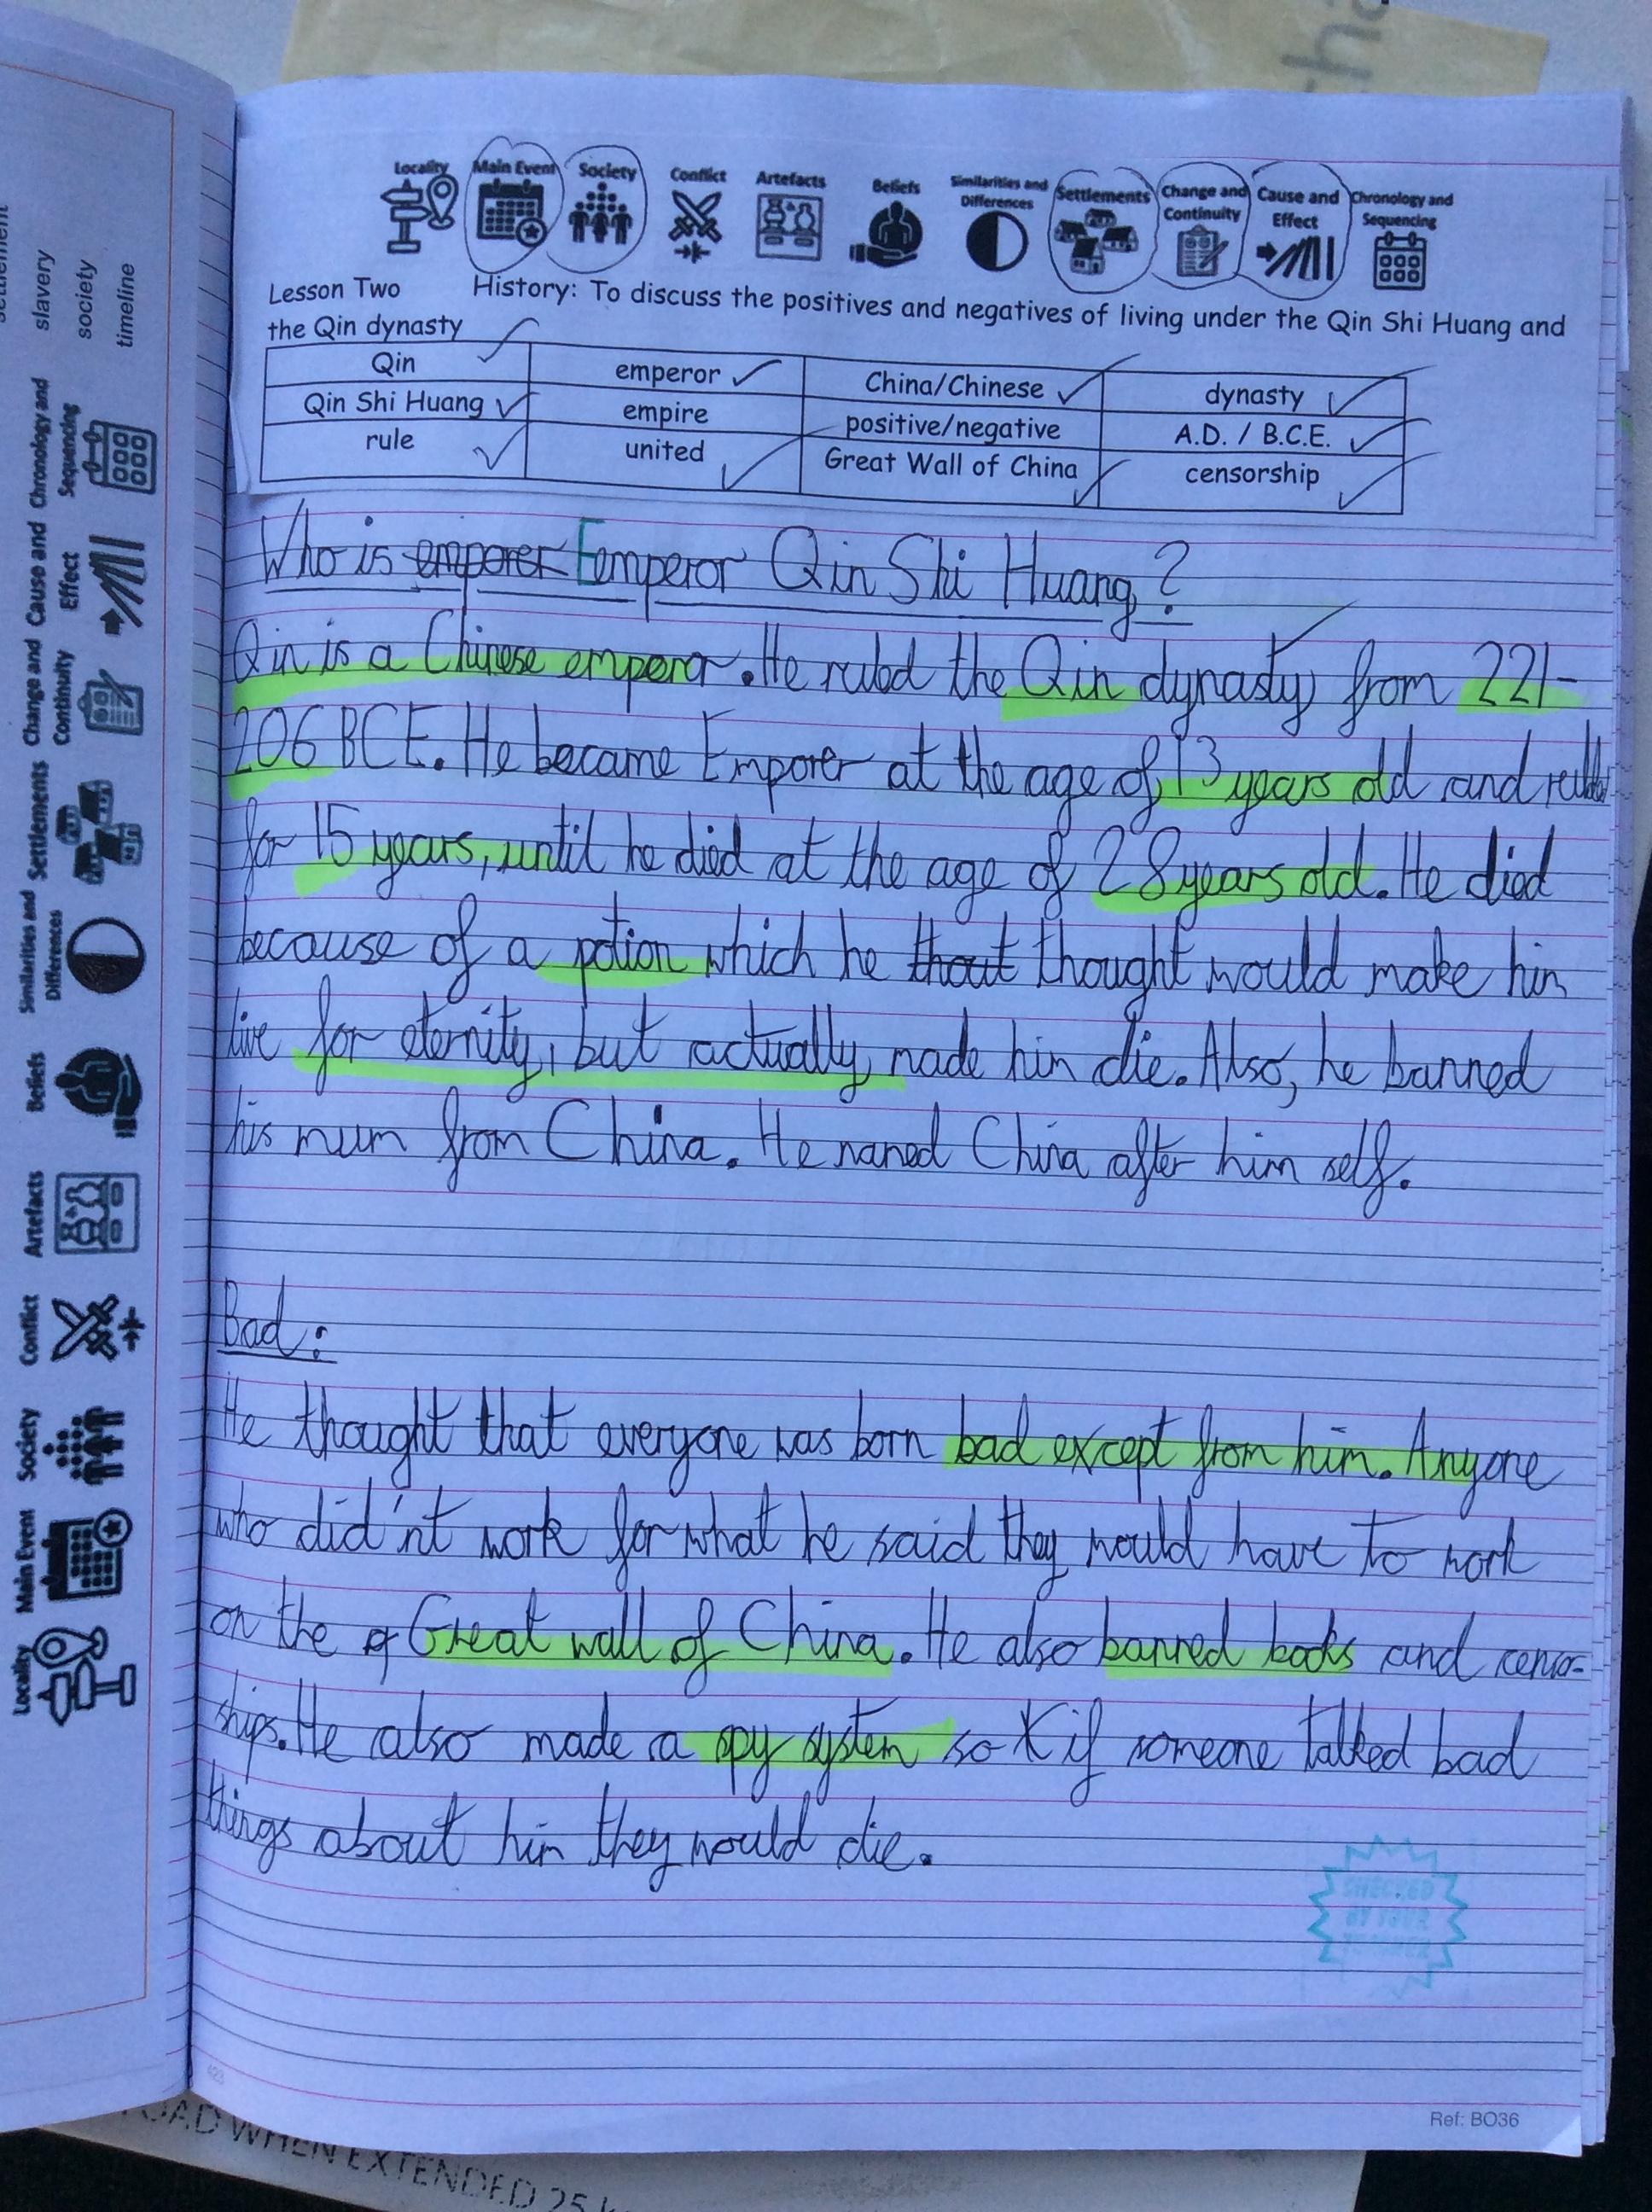 Locality
Main Event
Society
Conflict
Artefacts
Beliefs
Similarities and
Differences
Settlements
Change and
Continuity
Cause and
Effect
Chronology and
Sequencing
Lesson Two History: To discuss the positives and negatives of living under the Qin Shi Huang and
the Qin dynasty
Qin emperor China/Chinese dynasty
Qin Shi Huang empire positive/negative A.D. / B.C.E.
rule united Great Wall of China censorship
Who is emporer Eemperor Qin Shi Huang?
Qin is a Chinese emperor. He ruled the Qin dynasty from 221-
206 BCE. He became Emporer at the age of 13 years old and
for 15 years, until he died at the age of 28 years old. He died
because of a potion which he thout thought would make him
live for eternity, but actually made him die. Also, he banned
his mum from China. He named China after him self.
Bad:
He thought that everyone was born bad except from him. Anyone
who did'nt work for what he said they would have to work
on the g Great wall of China. He also banned books and censo-
ships. He also made a spy system so if someone talked bad
things about him they would die.
CHECKED
BY YOUR
TEACHER
Ref: BO36
slavery
society
timeline
Chronology and
Sequencing
Cause and
Effect
Change and
Continuity
Settlements
Similarities and
Differences
Beliefs
Artefacts
Conflict
Society
Main Event
Locality
WHEN EXTENDED 25